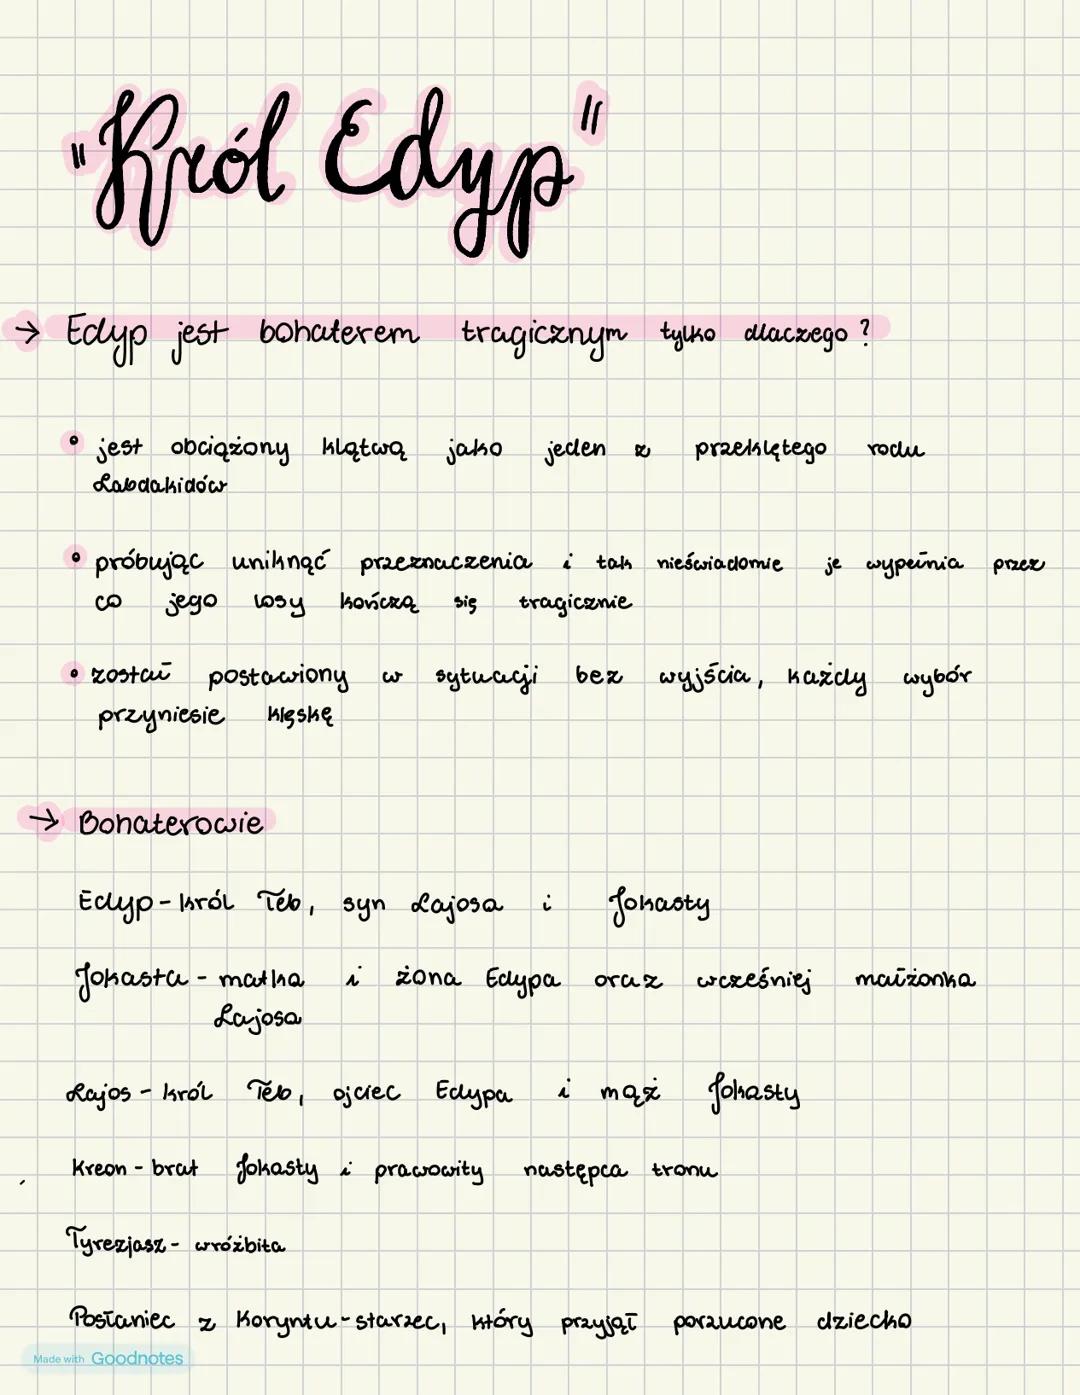 "Król Edyp"
→ Edyp jest bohaterem tragicznym tylko dlaczego?
• jest obciążony klątwą jako jeden z przeklętego rodu
Labdakidów
• próbując uniknąć przeznaczenia i tak nieświadomie je wypełnia przez
co jego losy kończą się tragicznie
• został postawiony w sytuacji bez wyjścia, każdy wybór
przyniesie klęskę
→ Bohaterowie
Edyp - król Teb, syn Lajosa i Jokasty
Jokasta - matka i żona Edypa oraz wcześniej małżonka
Lajosa
Lajos - król Teb, ojciec Edypa i mąż Jokasty
Kreon - brat Jokasty i prawowity następca tronu
Tyrezjasz - wróżbita
Posłaniec z Koryntu - starzec, który przyjął porzucone dziecko
Made with Goodnotes